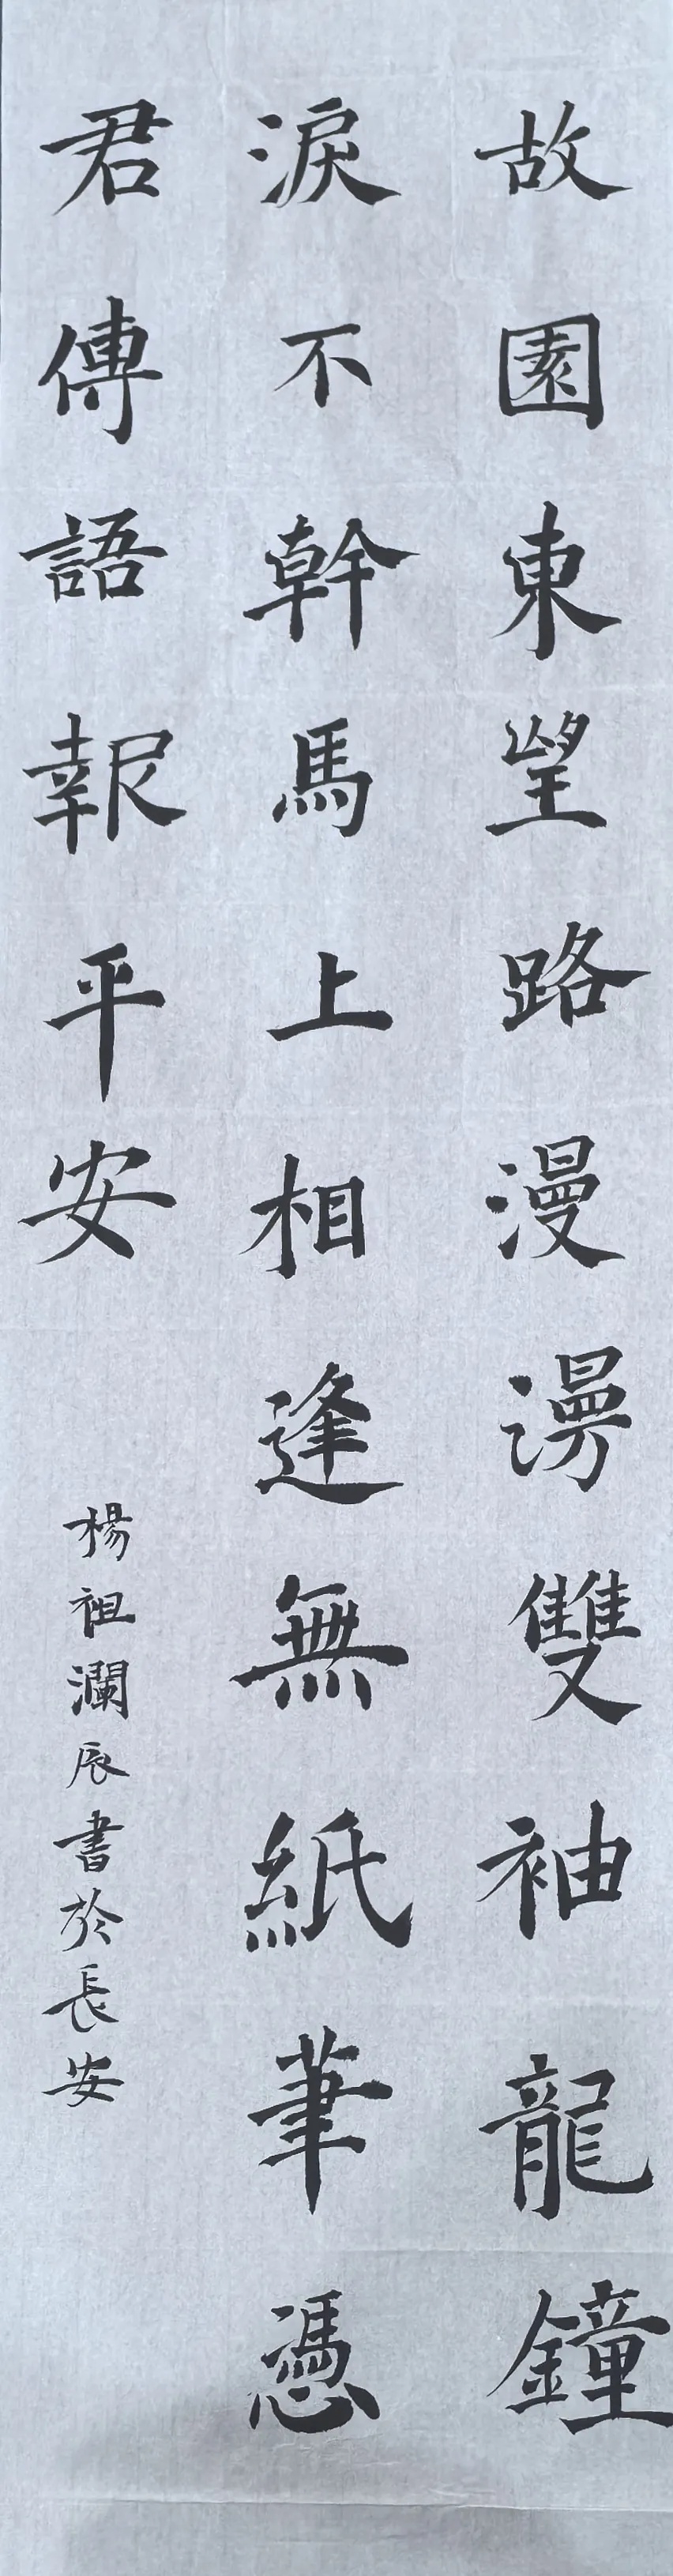 故園東望路漫漫雙袖龍鐘
淚不幹馬上相逢無紙筆憑
君傳語報平安
楊祖瀾辰書於長安